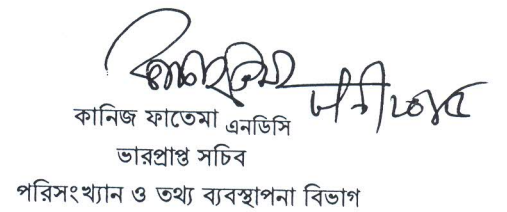 কানিজ ফাতেমা এনডিসি
ভারপ্রাপ্ত সচিব
পরিসংখ্যান ও তথ্য ব্যবস্থাপনা বিভাগ